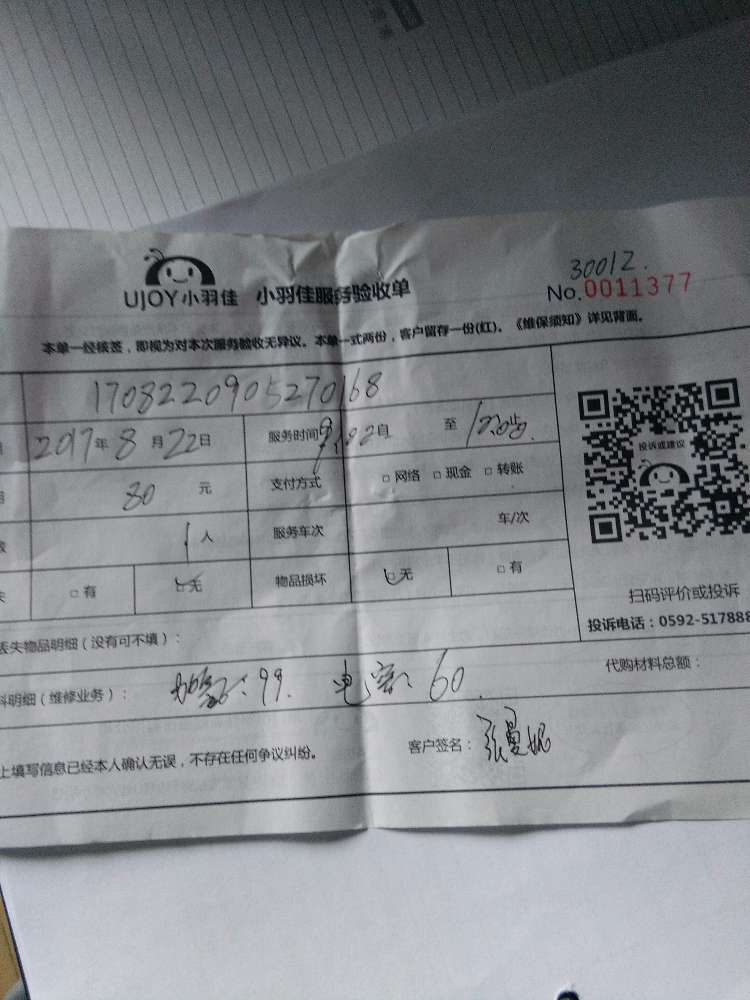 30012.
UJOY小羽佳 小羽佳服务验收单 No.0011377
本单一经核签，即视为对本次服务验收无异议。本单一式两份，客户留存一份(红)。《维保须知》详见背面。
1708220905270168
2017年8月22日 服务时间 自 至
80 元 支付方式 □网络 □现金 □转账
1人 服务车次 车/次
□有 □无 物品损坏 □无 □有
投诉或建议
扫码评价或投诉
投诉电话：0592-517888
丢失物品明细（没有可不填）：
料明细（维修业务）： 加氨：99. 电容：60. 代购材料总额：
上填写信息已经本人确认无误，不存在任何争议纠纷。 客户签名：张曼妮